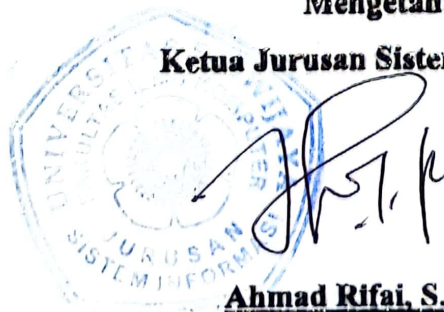 Mengetah
Ketua Jurusan Sister
JURUSAN
SISTEM INFORMASI
Ahmad Rifai, S.